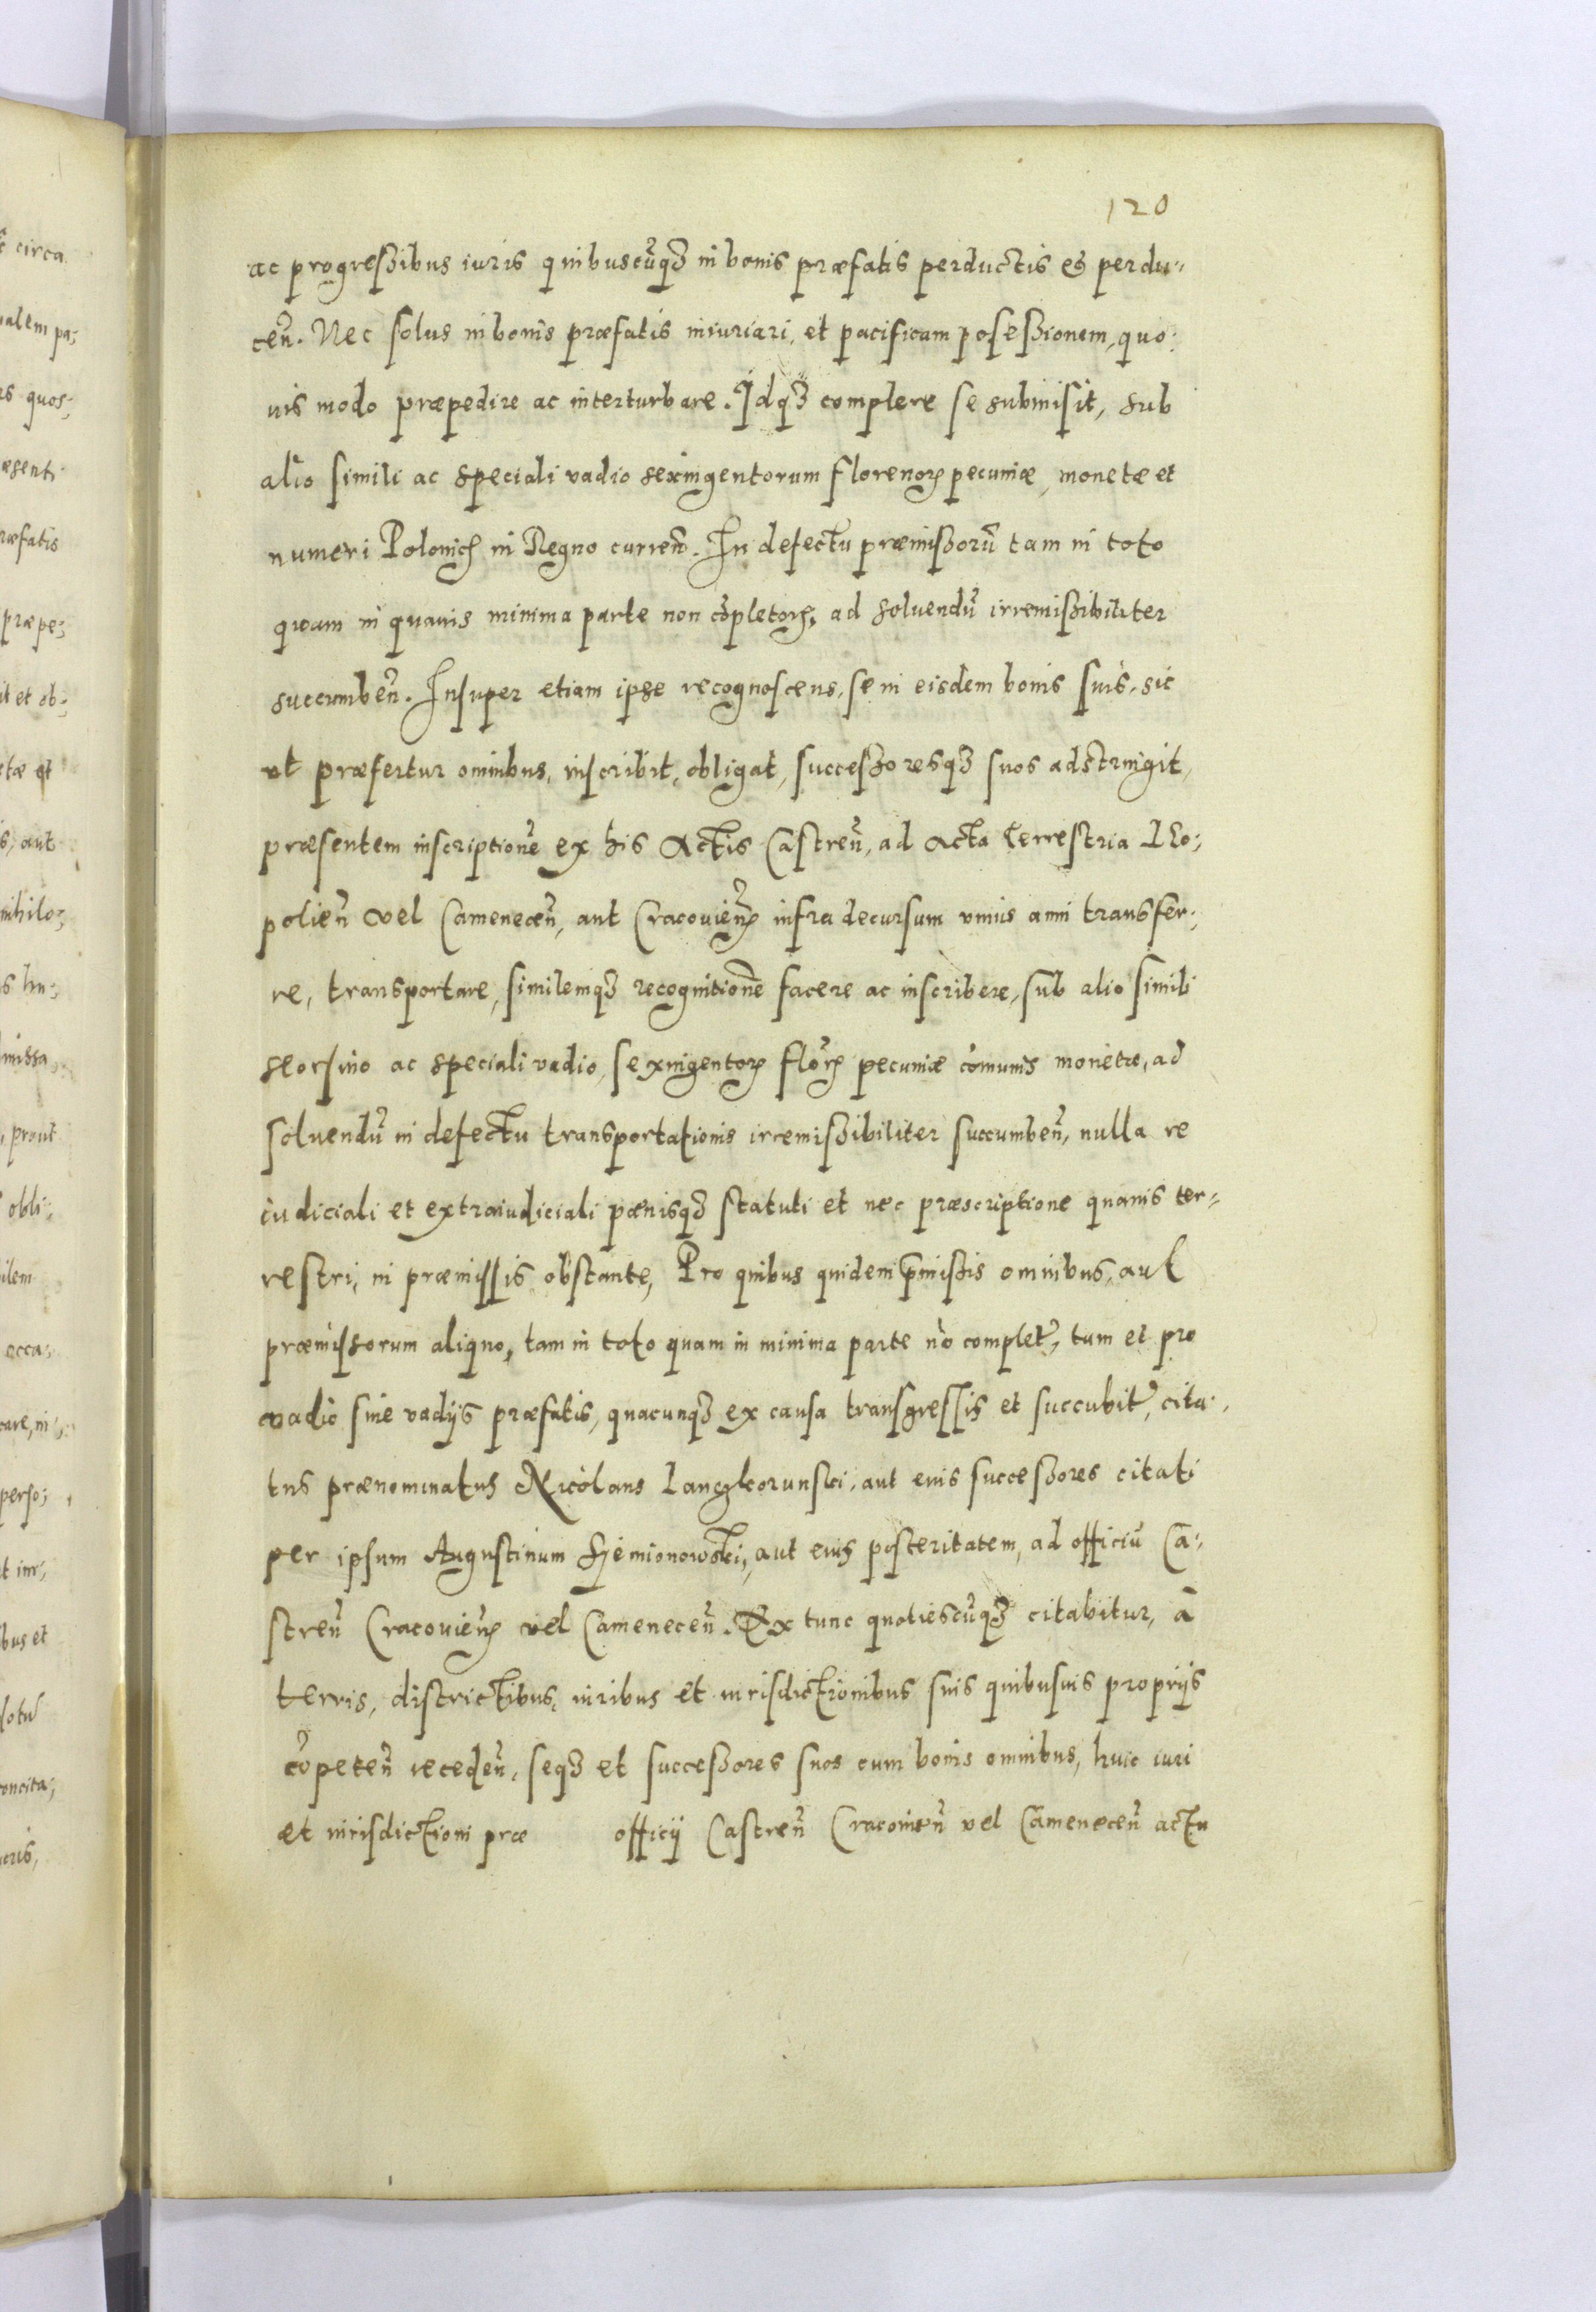 120
ac progreßibus iuris quibuscūqȝ in bonis præfatis perductis et perdu⸗
ceñ. Nec solus in bonis præfatis iniuriari, et pacificam poseßionem, quo⸗
uis modo præpedire ac interturbare. Idqȝ complere se submisit, sub
alio simili ac speciali vadio sexingentorum florenorꝝ pecuniæ, monetæ et
numeri Polonicꝝ in Regno curreñ. In defectu præmißorū tam in toto
quam in quauis minima parte non cōpletorꝝ, ad soluendū irremißibiliter
succumbeñ. Insuper etiam ipse recognoscens, se in eisdem bonis suis, sic
ut præfertur omnibus, inscribit, obligat, succeßoresqȝ suos adstringit,
præsentem inscriptionē ex his Actis Castreñ, ad Acta Terrestria Leo⸗
polieñ vel Cameneceñ, aut Cracovieñ infra decursum vnius anni transfer⸗
re, transportare, similemqȝ recognitionē facere ac inscribere, sub alio simili
seorsiuo ac speciali vadio, sexingentorꝝ flōrꝝ pecuniæ cōmunis monetæ, ad
soluendū in defectu transportationis irremißibiliter succumbeñ, nulla re
iudiciali et extraiudiciali pænisqȝ statuti et nec præscriptione quauis ter⸗
restri, in præmissis obstante, Pro quibus quidem p̄mißis omnibus, aut
præmissorum aliquo, tam in toto quam in minima parte nō complet̄, tum et pro
vadio siue vadijs præfatis, quacunqȝ ex causa transgressis et succubit̄, cita⸗
tus prænominatus Nicolaus aut eius succeßores citati
per ipsum Augustinum aut eius posteritatem, ad officiū Ca⸗
streñ Cracovieñ vel Cameneceñ. Ex tunc quotiescūqȝ citabitur, à
terris, districtibus, iuribus et iurisdictionibus suis quibusuis proprijs
cōpeteñ recedeñ, seqȝ et succeßores suos cum bonis omnibus, huic iuri
et iurisdictioni præ officij Castreñ Cracouieñ vel Cameneceñ actu